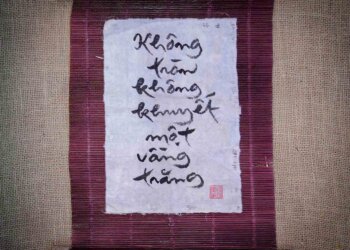 Không
tròn
không
khuyết
một
vầng
trăng